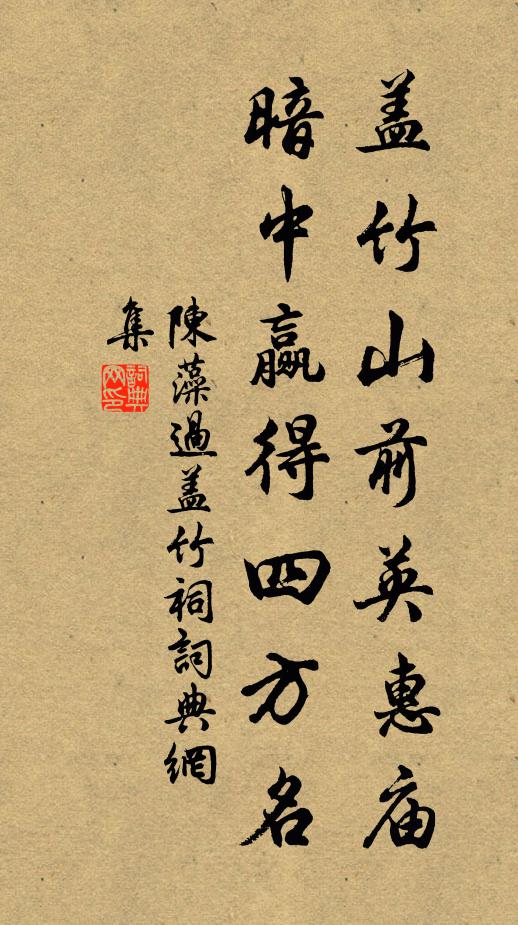 盖竹山前英惠庙
暗中赢得四方名
陳藻過盖竹祠詞典網
集
詞典
网印